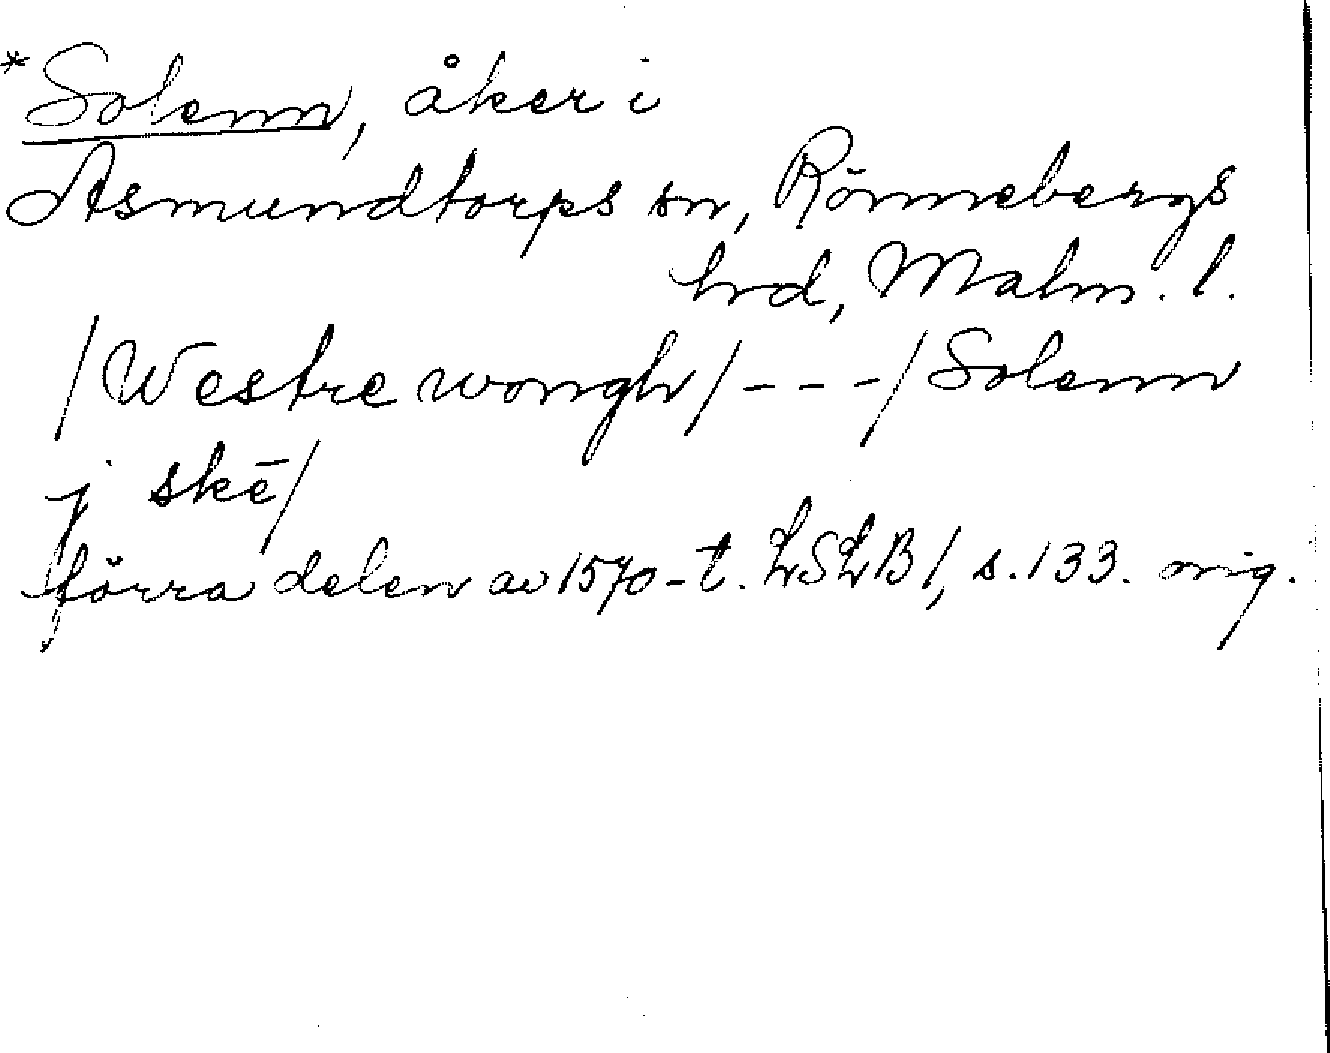 *Solenn, åker i
Asmundtorps sn, Rönnebergs
hrd, Malm. l.
/Westre wongh/---/Solenn
j skē/
förra delen av 1570-t. LSLB 1, s. 133. orig.